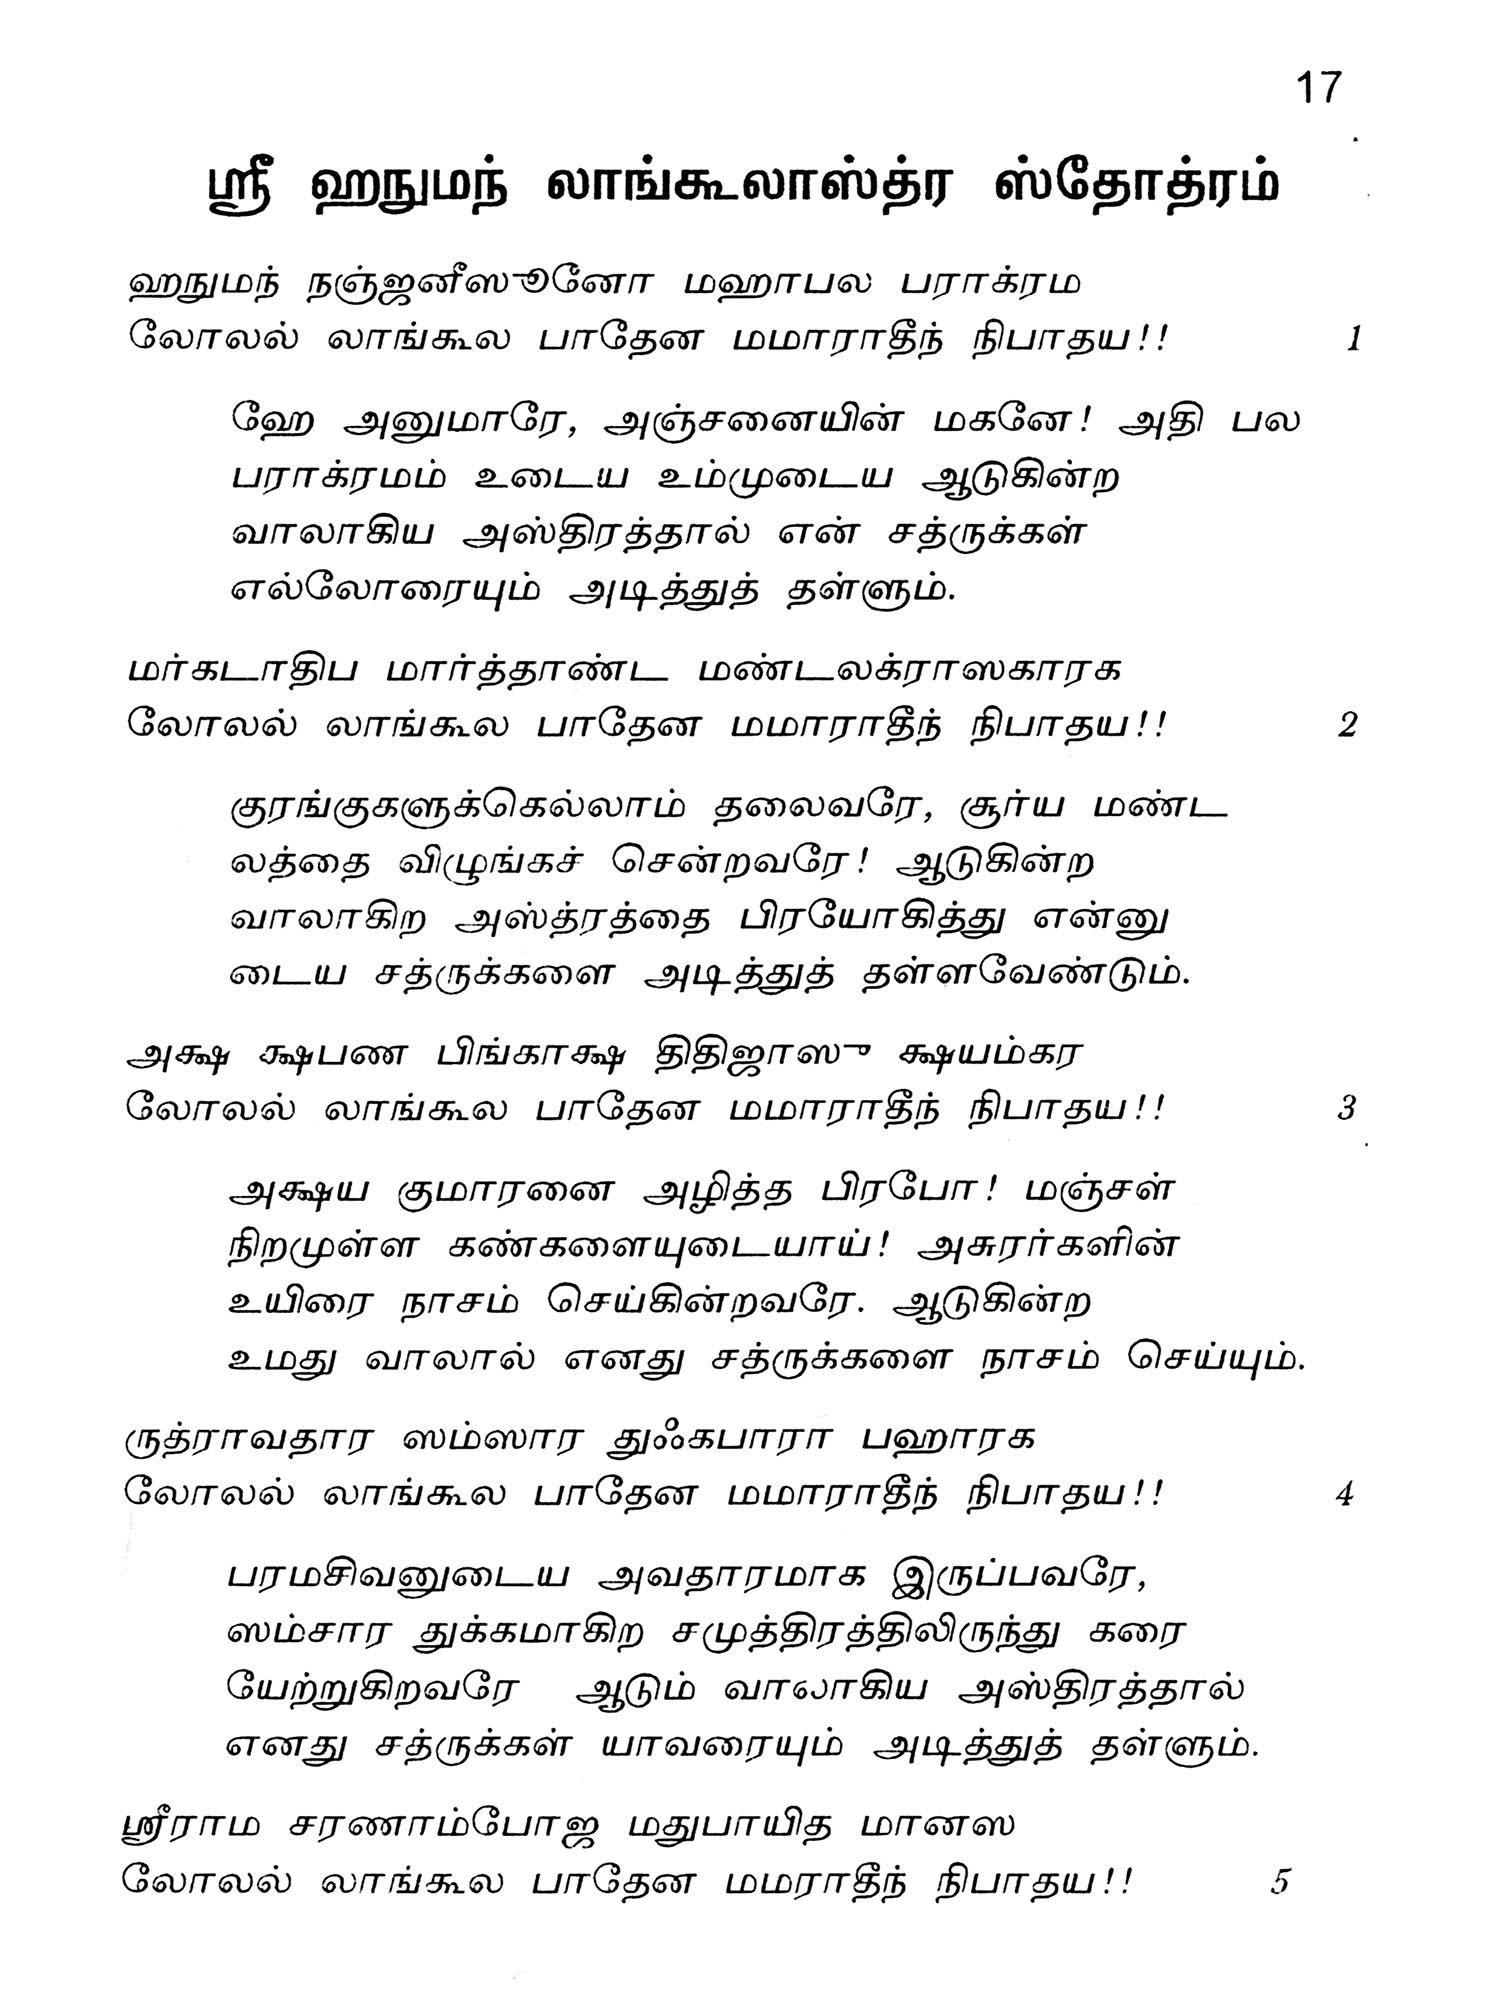 17
ஸ்ரீ ஹநுமந் லாங்கூலாஸ்த்ர ஸ்தோத்ரம்
ஹநுமந் நஞ்ஜனீஸூனோ மஹாபல பராக்ரம
லோலல் லாங்கூல பாதேன மமாராதீந் நிபாதய!! 1
ஹே அனுமாரே, அஞ்சனையின் மகனே! அதி பல
பராக்ரமம் உடைய உம்முடைய ஆடுகின்ற
வாலாகிய அஸ்திரத்தால் என் சத்ருக்கள்
எல்லோரையும் அடித்துத் தள்ளும்.
மர்கடாதிப மார்த்தாண்ட மண்டலக்ராஸகாரக
லோலல் லாங்கூல பாதேன மமாராதீந் நிபாதய!! 2
குரங்குகளுக்கெல்லாம் தலைவரே, சூர்ய மண்ட
லத்தை விழுங்கச் சென்றவரே! ஆடுகின்ற
வாலாகிற அஸ்த்ரத்தை பிரயோகித்து என்னு
டைய சத்ருக்களை அடித்துத் தள்ளவேண்டும்.
அக்ஷ க்ஷபண பிங்காக்ஷ திதிஜாஸு க்ஷயம்கர
லோலல் லாங்கூல பாதேன மமாராதீந் நிபாதய!! 3
அக்ஷய குமாரனை அழித்த பிரபோ! மஞ்சள்
நிறமுள்ள கண்களையுடையாய்! அசுரர்களின்
உயிரை நாசம் செய்கின்றவரே. ஆடுகின்ற
உமது வாலால் எனது சத்ருக்களை நாசம் செய்யும்.
ருத்ராவதார ஸம்ஸார துஃகபாரா பஹாரக
லோலல் லாங்கூல பாதேன மமாராதீந் நிபாதய!! 4
பரமசிவனுடைய அவதாரமாக இருப்பவரே,
ஸம்சார துக்கமாகிற சமுத்திரத்திலிருந்து கரை
யேற்றுகிறவரே ஆடும் வாலாகிய அஸ்திரத்தால்
எனது சத்ருக்கள் யாவரையும் அடித்துத் தள்ளும்.
ஸ்ரீராம சரணாம்போஜ மதுபாயித மானஸ
லோலல் லாங்கூல பாதேன மமராதீந் நிபாதய!! 5